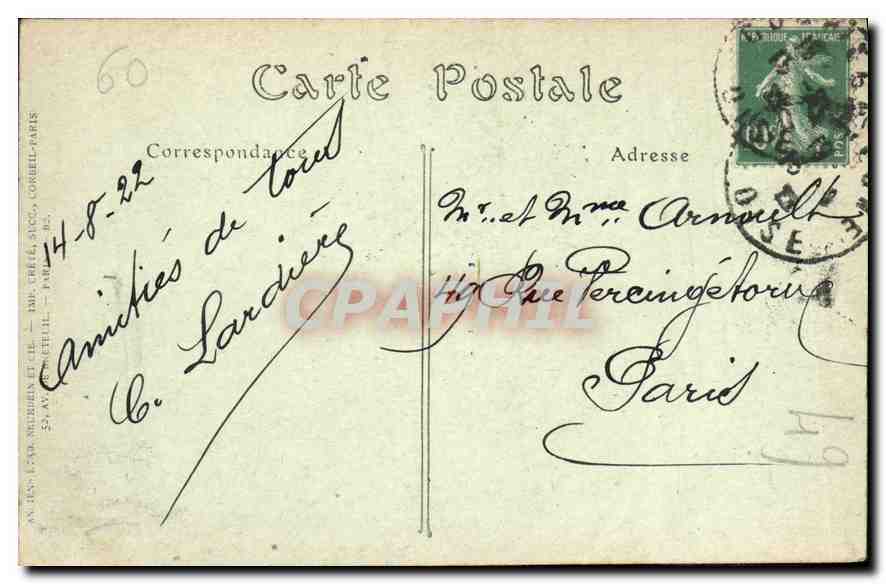 60
Carte Postale
Correspondance
Adresse
RÉPUBLIQUE FRANÇAISE
POS
OISE
14-8-22
Amitiés de tous
C. Lardière
Mr. et Mme. Arnoult
49 Rue Vercingétorix
Paris
CPAPHIL
67
ANCIENS ÉTAB. NEURDEIN ET CIE. — IMP. CRÉTÉ, SUCC., CORBEIL-PARIS
52, AV. DE BRETEUIL. — PARIS